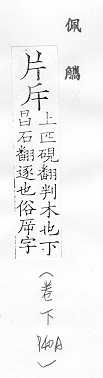 佩觿
片斥
上匹硯翻判木也下
昌石翻逐也俗㡿字
(卷下
140A)